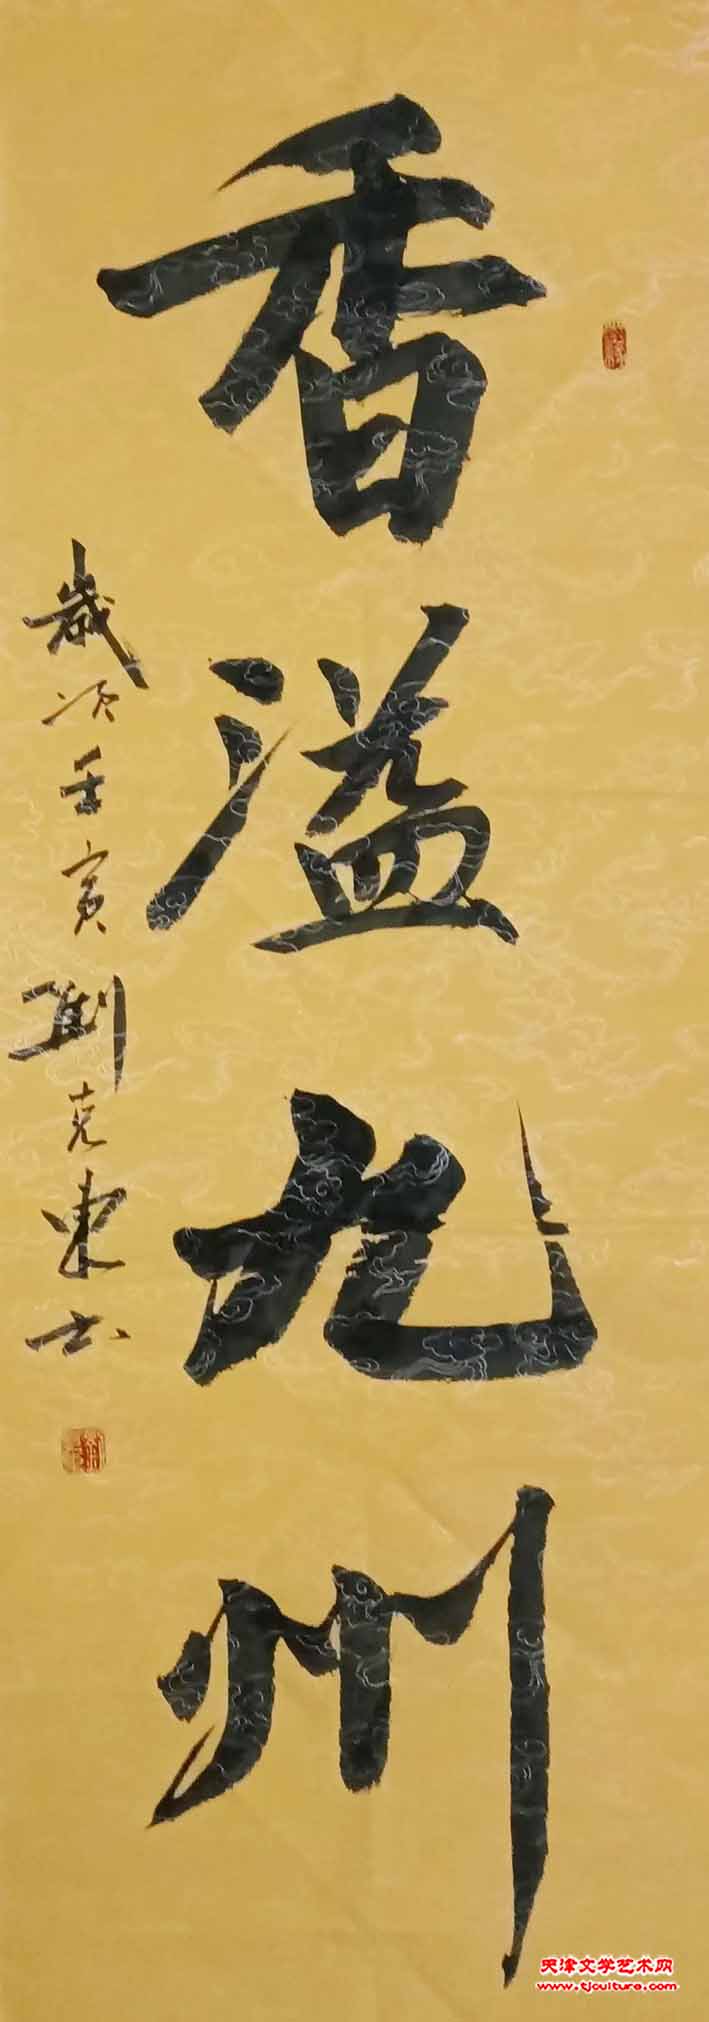 香溢九州
歲次壬寅劉克東书
天津文学艺术网
www.tjculture.com